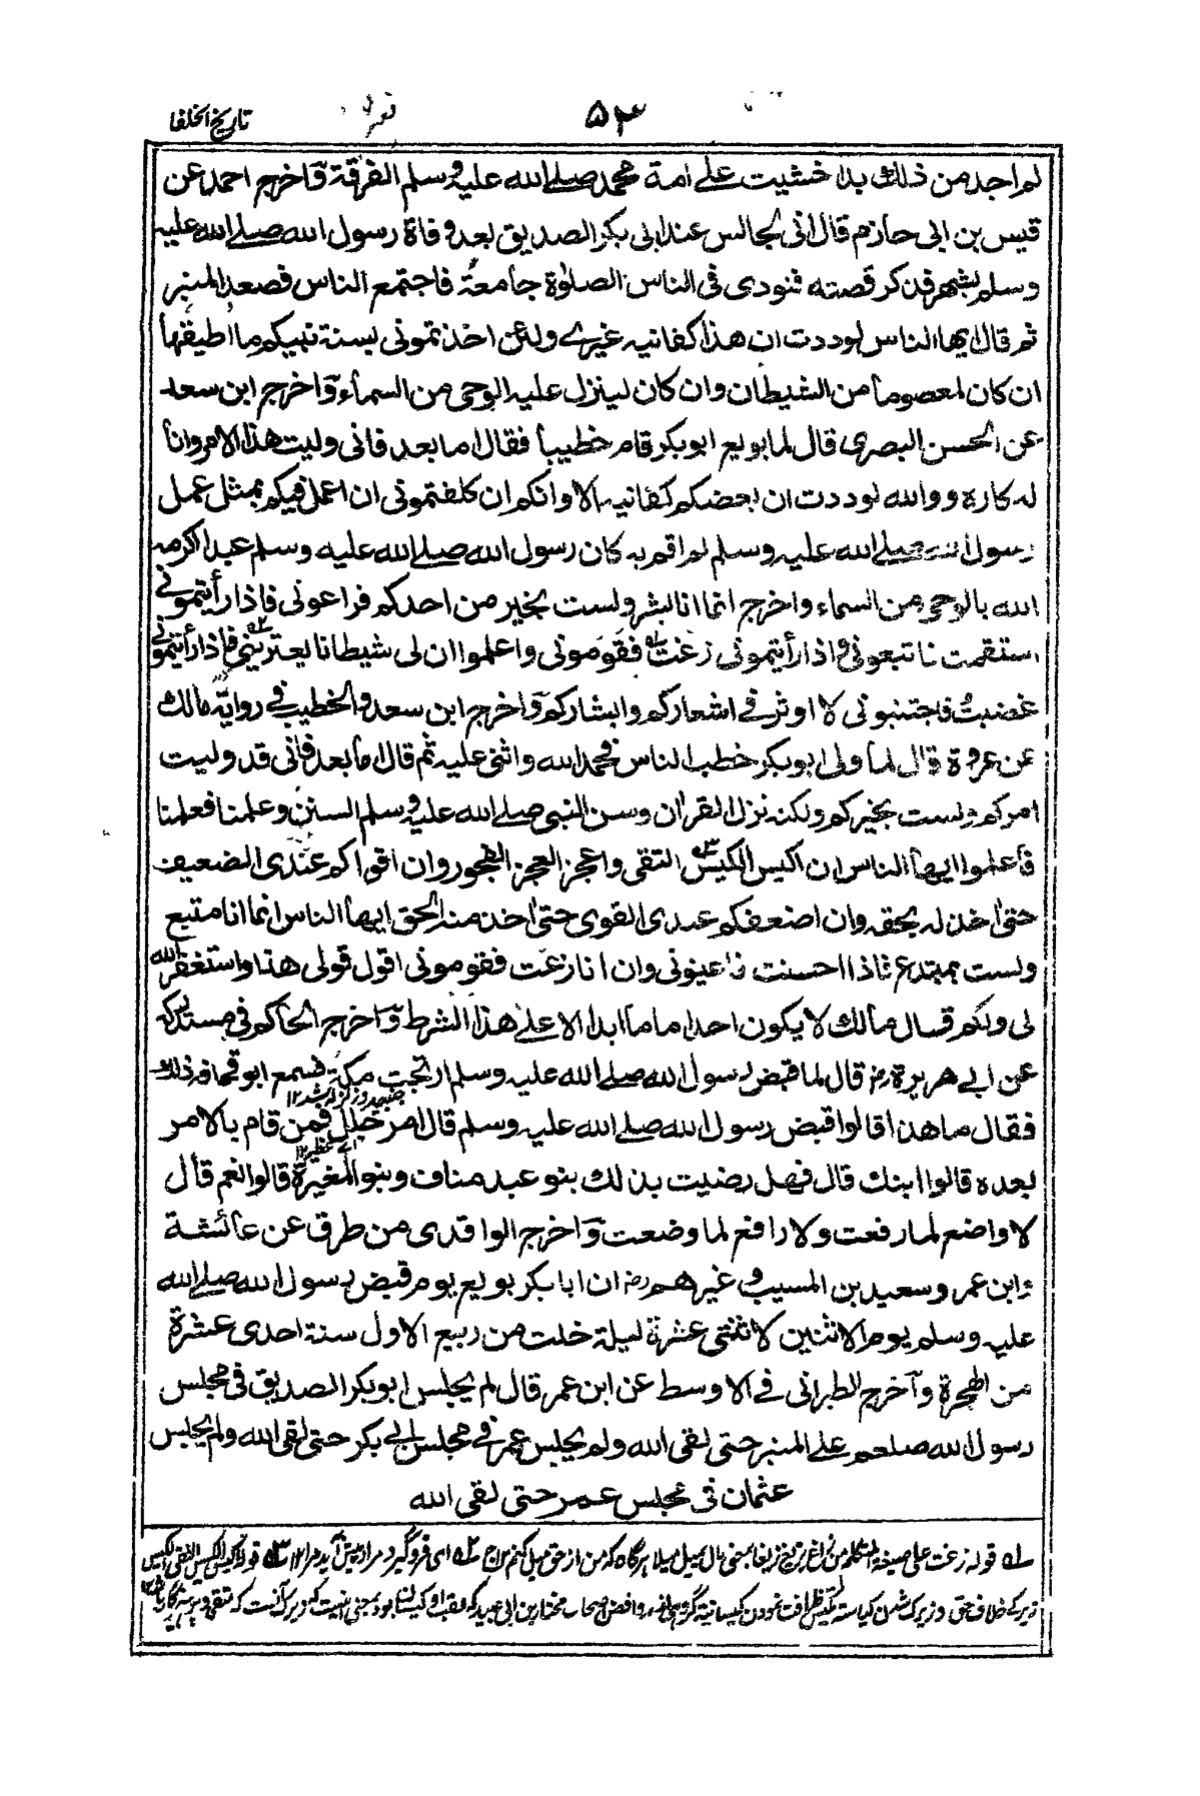 تاريخ الخلفا
۵۳
لم اجد من ذلك بدا خشيت على امة محمد صلے الله عليه وسلم الفرقة وآخرج احمد عن
قيس بن ابي حازم قال انى لجالس عند ابى بكر الصديق بعد وفاة رسول الله صلے الله عليه
وسلم بشهر فذكر قصته فنودى فى الناس الصلوٰة جامعة فاجتمع الناس فصعد المنبر
ثم قال ايها الناس لوددت ان هذا كفانيه غيرے ولئن اخذ تمونى بسنة نبيكم ما اطيقها
ان كان لمعصوما من الشيطان وان كان لينزل عليه الوحى من السماء وآخرج ابن سعد
عن الحسن البصرى قال لما بويع ابوبكر قام خطيبا فقال اما بعد فانى وليت هذا الامر وانا
له كاره ووالله لوددت ان بعضكم كفانيه الا وانكم ان كلفتمونى ان اعمل فيكم بمثل عمل
رسول الله صلے الله عليه وسلم لم اقم به كان رسول الله صلے الله عليه وسلم عبدا اكرمه
الله بالوحى من السماء واخرج انما انا بشر ولست بخير من احدكم فراعونى فاذا رأيتمونے
استقمت فاتبعونى واذا رأيتمونى زغت فقومونى واعلموا ان لى شيطانا يعترينى فاذا رأيتمونى
غضبت فاجتنبونى لا اوثر فے اشعاركم وابشاركم وآخرج ابن سعد والخطيب فے رواية مالك
عن عروة قال لما ولى ابوبكر خطب الناس فحمد الله واثنى عليه ثم قال اما بعد فانى قد وليت
امركم ولست بخيركم ولكنه نزل القران وسن النبى صلے الله عليه وسلم السنن وعلمنا فعلمنا
فاعلموا ايها الناس ان اكيس الكيس التقى واعجز العجز الفجور وان اقواكم عندى الضعيف
حتى اخذ له بحقه وان اضعفكم عندى القوى حتى اخذ منه الحق ايها الناس انما انا متبع
ولست بمبتدع فاذا احسنت فاعينونى وان انا زغت فقومونى اقول قولى هذا واستغفر الله
لى ولكم قال مالك لا يكون احد اماما ابدا الا على هذا الشرط وآخرج الحاكم فى مستدركه
عن ابے هريرة رض قال لما قبض رسول الله صلے الله عليه وسلم ارتجت مكة فسمع ابو قحافة ذلك
فقال ما هذا قالوا قبض رسول الله صلے الله عليه وسلم قال امر جلل فمن قام بالامر
بعده قالوا ابنك قال فهل رضيت بذلك بنو عبد مناف وبنو المغيرة قالوا نعم قال
لا واضع لما رفعت ولا رافع لما وضعت وآخرج الواقدى من طرق عن عائشة
وابن عمر وسعيد بن المسيب وغيرهم رض ان ابا بكر بويع يوم قبض رسول الله صلے الله
عليه وسلم يوم الاثنين لاثنتى عشرة ليلة خلت من ربيع الاول سنة احدى عشرة
من الهجرة وآخرج الطبرانى فے الاوسط عن ابن عمر قال لم يجلس ابوبكر الصديق فى مجلس
رسول الله صلعم على المنبر حتى لقى الله ولم يجلس عمر فے مجلس ابے بكر حتى لقى الله ولم يجلس
عثمان فى مجلس عمر حتى لقى الله
قوله زغت على صيغة المتكلم من زاغ يزيغ زيغا بمعنى مال يميل ميلا هرگاه كه من از حق ميل كنم
زيركى خلاف حق و زيرك شدن